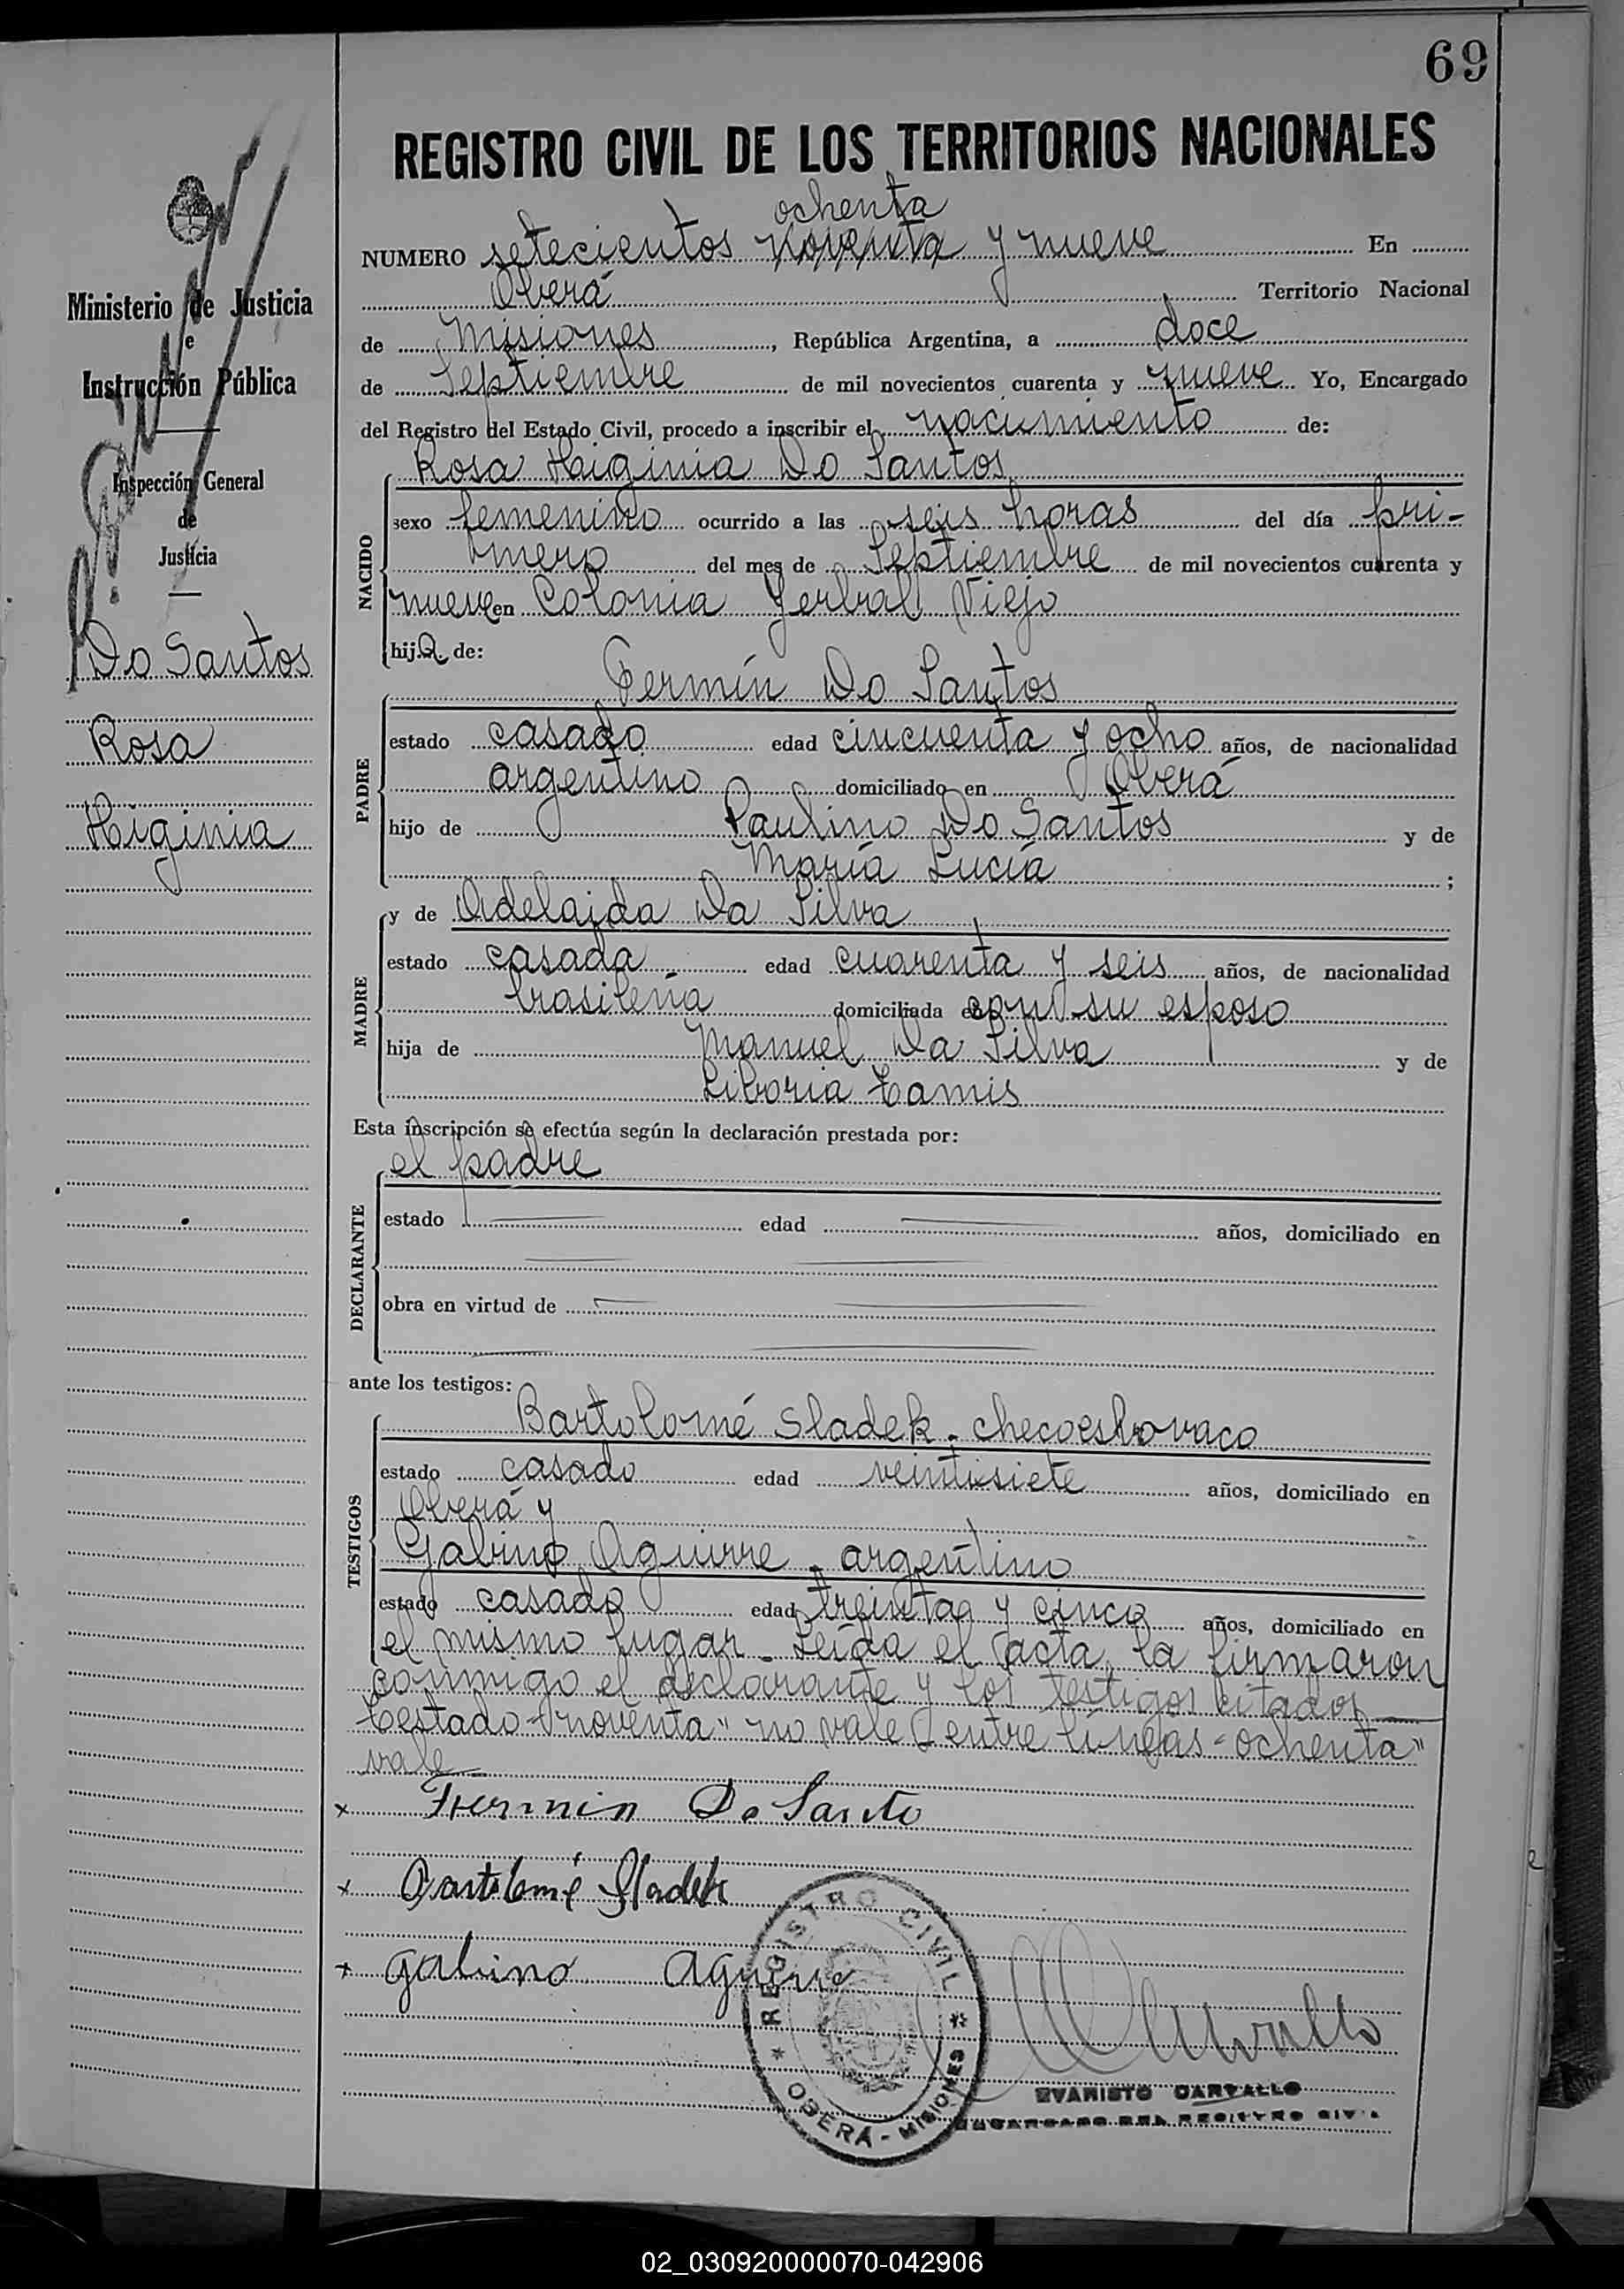 69
REGISTRO CIVIL DE LOS TERRITORIOS NACIONALES
ochenta
NUMERO setecientos noventa y nueve En
Oberá Territorio Nacional
de Misiones, República Argentina, a doce
de Septiembre de mil novecientos cuarenta y nueve Yo, Encargado
del Registro del Estado Civil, procedo a inscribir el nacimiento de:
Rosa Higinia Do Santos
NACIDO
sexo femenino ocurrido a las seis horas del día pri-
mero del mes de Septiembre de mil novecientos cuarenta y
nueve en Colonia Yerbal Viejo
hija de:
Fermín Do Santos
PADRE
estado casado edad cincuenta y ocho años, de nacionalidad
argentino domiciliado en Oberá
hijo de Paulino Do Santos y de
María Lucía ;
y de Adelaida Da Silva
MADRE
estado casada edad cuarenta y seis años, de nacionalidad
brasileña domiciliada en con su esposo
hija de Manuel Da Silva y de
Liboria Tamis
Esta inscripción se efectúa según la declaración prestada por:
el padre
DECLARANTE
estado edad años, domiciliado en
obra en virtud de
ante los testigos:
Bartolomé Sladek - checoeslovaco
TESTIGOS
estado casado edad veintisiete años, domiciliado en
Oberá y
Gabino Aguirre - argentino
estado casado edad treinta y cinco años, domiciliado en
el mismo lugar - Leída el acta, la firmaron
conmigo el declarante y los testigos citados
Testado "noventa" no vale - entre líneas "ochenta"
vale
x Fermin Do Santo
x Bartolomé Sladek
x gabino Aguirre
REGISTRO CIVIL
* OBERÁ - MISIONES *
EVARISTO CARVALLO
ENCARGADO DEL REGISTRO CIVIL
Ministerio de Justicia
e
Instrucción Pública
Inspección General
de
Justicia
Do Santos
Rosa
Higinia
02_030920000070-042906